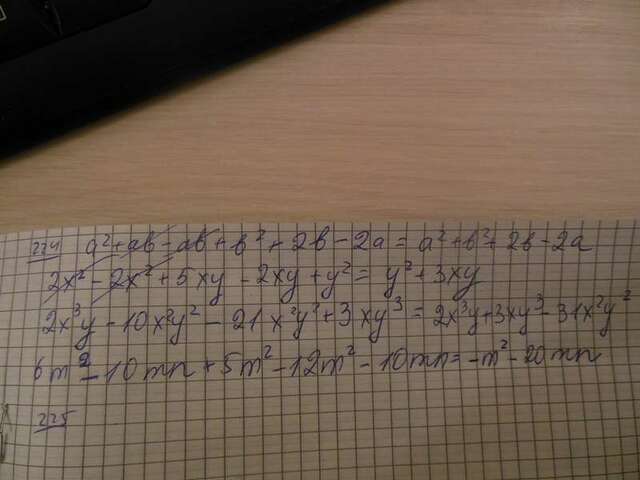 224 a²+ab-ab+b²+2b-2a=a²+b²+2b-2a
2x²-2x²+5xy-2xy+y²=y²+3xy
2x³y-10x²y²-21x²y²+3xy³=2x³y+3xy³-31x²y²
6m²-10mn+5m²-12m²-10mn=-m²-20mn
225